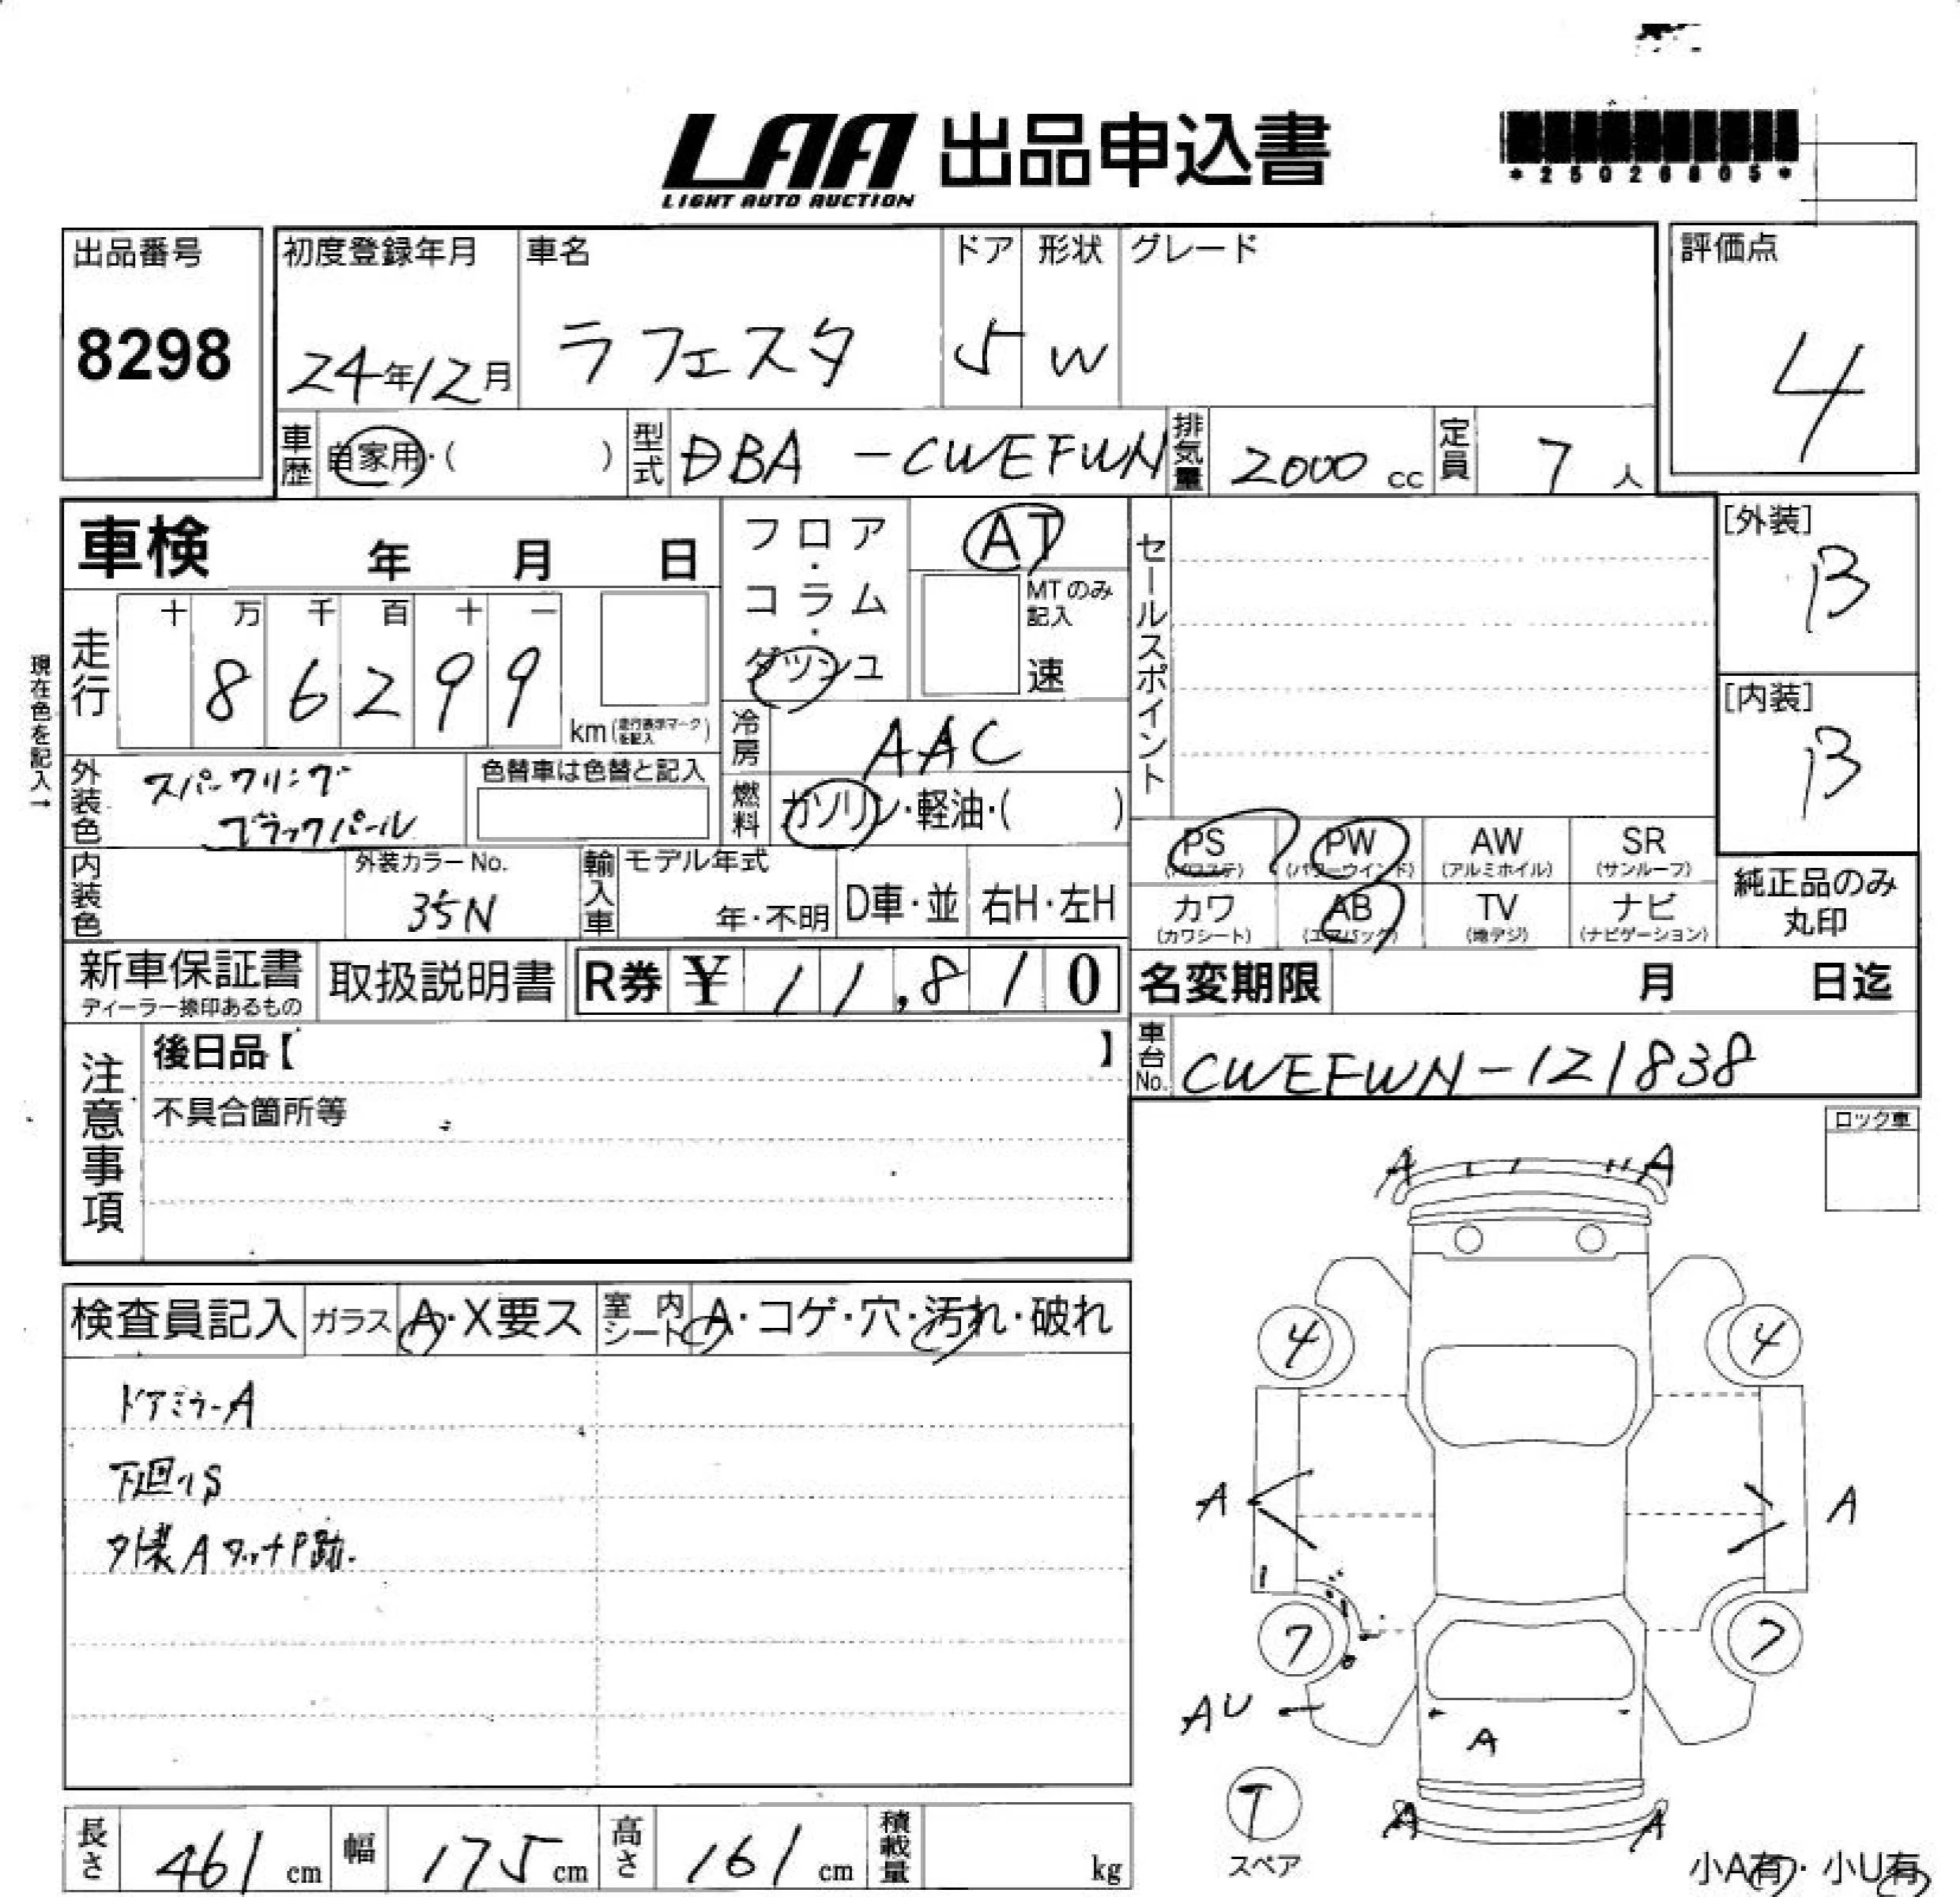 LAA 出品申込書
LIGHT AUTO AUCTION
*25026805*
出品番号
8298
初度登録年月
24年12月
車名
ラフェスタ
ドア
5
形状
W
グレード
評価点
4
車歴
自家用・( )
型式
DBA-CWEFWN
排気量
2000 cc
定員
7 人
車検 年 月 日
フロア・コラム・ダッシュ
AT
MTのみ記入
速
セールスポイント
[外装]
B
[内装]
B
現在色を記入→
走行
十 万 千 百 十 一
8 6 2 9 9
km (走行表示マークを記入)
冷房
AAC
燃料
ガソリン・軽油・( )
外装色
スパークリング
ブラックパール
色替車は色替と記入
内装色
外装カラーNo.
35N
輸入車
モデル年式
年・不明
D車・並
右H・左H
PS
(パワステ)
PW
(パワーウインド)
AW
(アルミホイル)
SR
(サンルーフ)
カワ
(カワシート)
AB
(エアバック)
TV
(地デジ)
ナビ
(ナビゲーション)
純正品のみ
丸印
新車保証書
ディーラー捺印あるもの
取扱説明書
R券 ¥ 11,810
名変期限 月 日迄
車台No.
CWEFWN-121838
注意事項
後日品【 】
不具合箇所等
ロック車
検査員記入
ガラス
A・X要ス
室内シート
A・コゲ・穴・汚れ・破れ
ドアミラーA
下廻りS
外装Aタッチ P跡.
A A
4 4
A A
7 7
AU
A
T
スペア
A A
小A有・小U有
長さ
461 cm
幅
175 cm
高さ
161 cm
積載量
kg